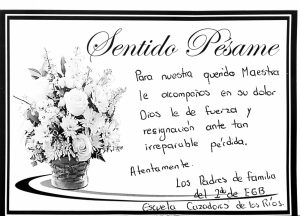 Sentido Pésame
Para nuestra querida Maestra
le acompaños en su dolor
Dios le de fuerza y
resignación ante tan
irreparable pérdida.
Atentamente.
Los Padres de familia
del 2do de EGB
Escuela Cazadores de los Ríos.